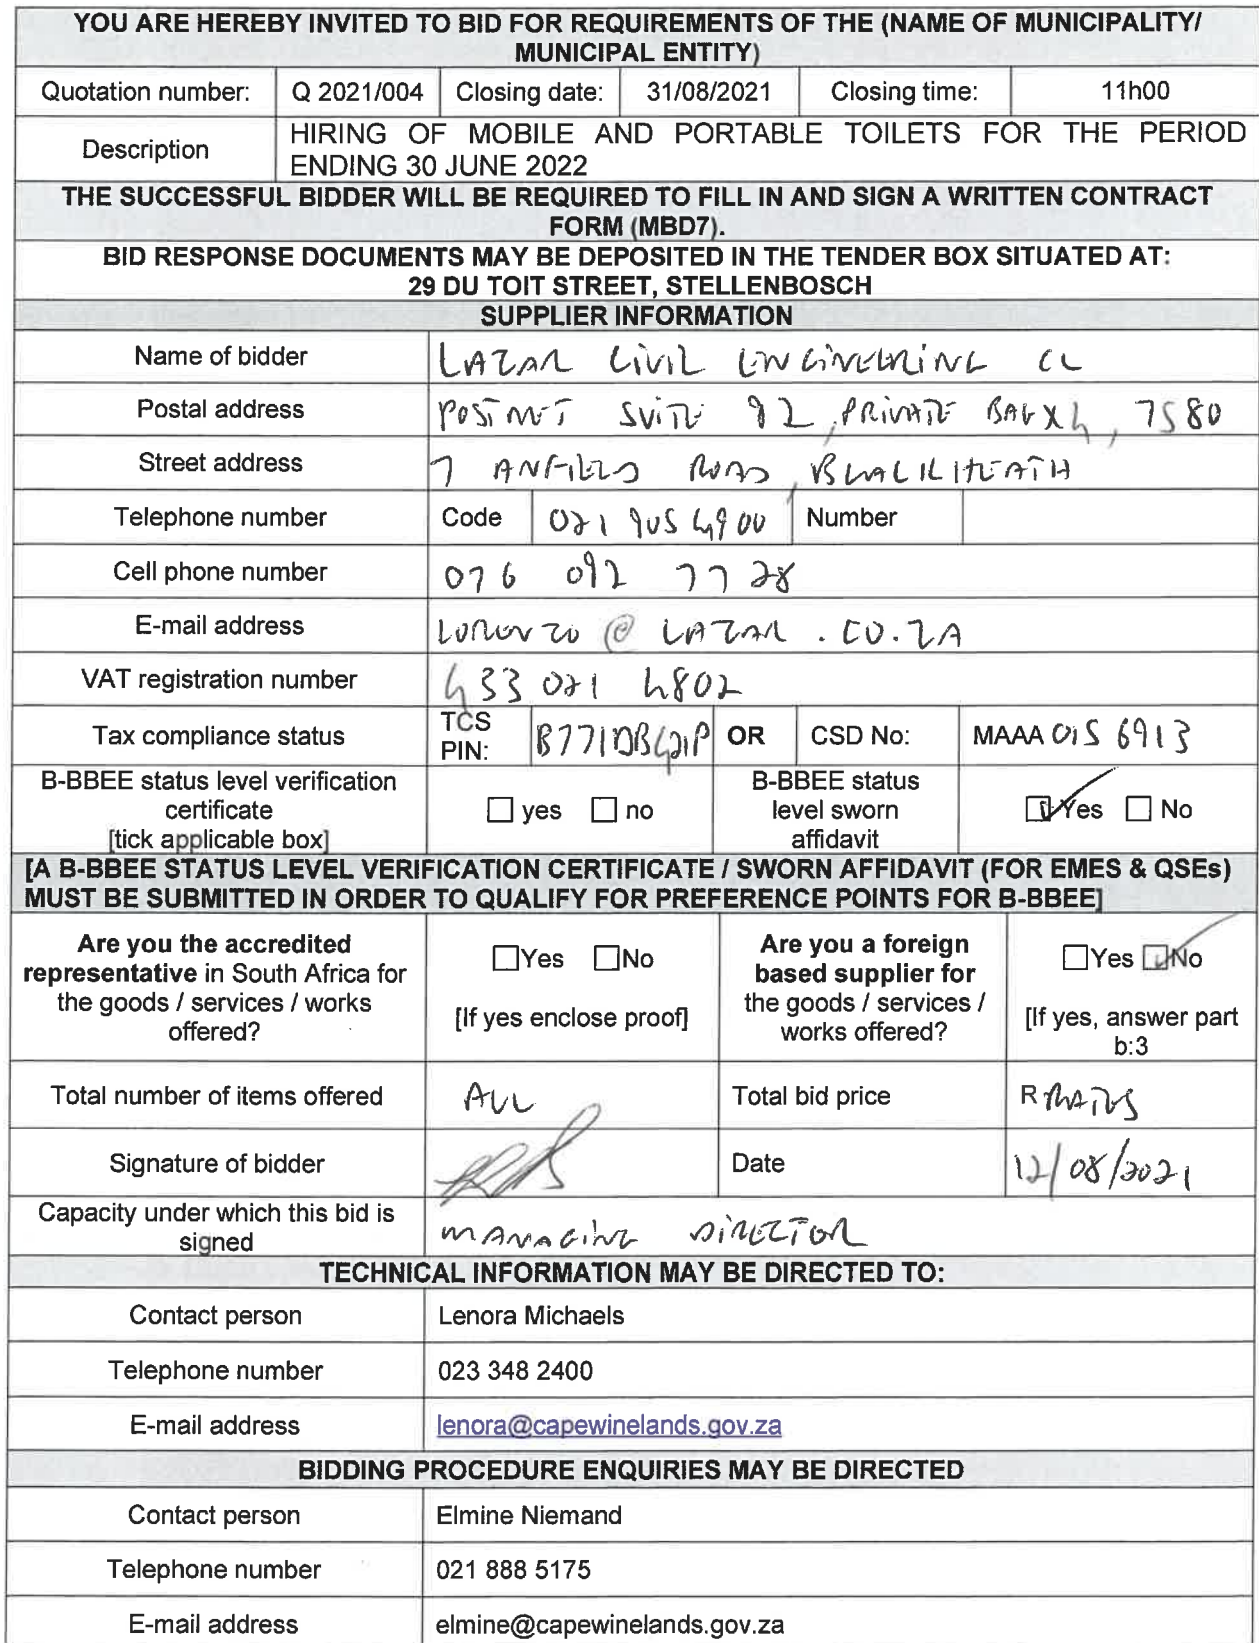 YOU ARE HEREBY INVITED TO BID FOR REQUIREMENTS OF THE (NAME OF MUNICIPALITY/
MUNICIPAL ENTITY)
Quotation number: Q 2021/004 Closing date: 31/08/2021 Closing time: 11h00
Description HIRING OF MOBILE AND PORTABLE TOILETS FOR THE PERIOD
ENDING 30 JUNE 2022
THE SUCCESSFUL BIDDER WILL BE REQUIRED TO FILL IN AND SIGN A WRITTEN CONTRACT
FORM (MBD7).
BID RESPONSE DOCUMENTS MAY BE DEPOSITED IN THE TENDER BOX SITUATED AT:
29 DU TOIT STREET, STELLENBOSCH
SUPPLIER INFORMATION
Name of bidder LAZAR CIVIL ENGINEERING CC
Postal address POSTNET SUITE 92, PRIVATE BAG X4, 7580
Street address 7 ANFIELD ROAD, BLACKHEATH
Telephone number Code 021 905 4900 Number
Cell phone number 076 092 7728
E-mail address LORENZO @ LAZAR . CO.ZA
VAT registration number 433 021 4802
Tax compliance status TCS
PIN: OR CSD No: MAAA 015 6913
B-BBEE status level verification
certificate
[tick applicable box] yes no
B-BBEE status
level sworn
affidavit Yes No
[A B-BBEE STATUS LEVEL VERIFICATION CERTIFICATE / SWORN AFFIDAVIT (FOR EMES & QSEs)
MUST BE SUBMITTED IN ORDER TO QUALIFY FOR PREFERENCE POINTS FOR B-BBEE]
Are you the accredited
representative in South Africa for
the goods / services / works
offered?
Yes No
[If yes enclose proof]
Are you a foreign
based supplier for
the goods / services /
works offered?
Yes No
[If yes, answer part
b:3
Total number of items offered ALL Total bid price R RATES
Signature of bidder Date 12/08/2021
Capacity under which this bid is
signed MANAGING DIRECTOR
TECHNICAL INFORMATION MAY BE DIRECTED TO:
Contact person Lenora Michaels
Telephone number 023 348 2400
E-mail address lenora@capewinelands.gov.za
BIDDING PROCEDURE ENQUIRIES MAY BE DIRECTED
Contact person Elmine Niemand
Telephone number 021 888 5175
E-mail address elmine@capewinelands.gov.za